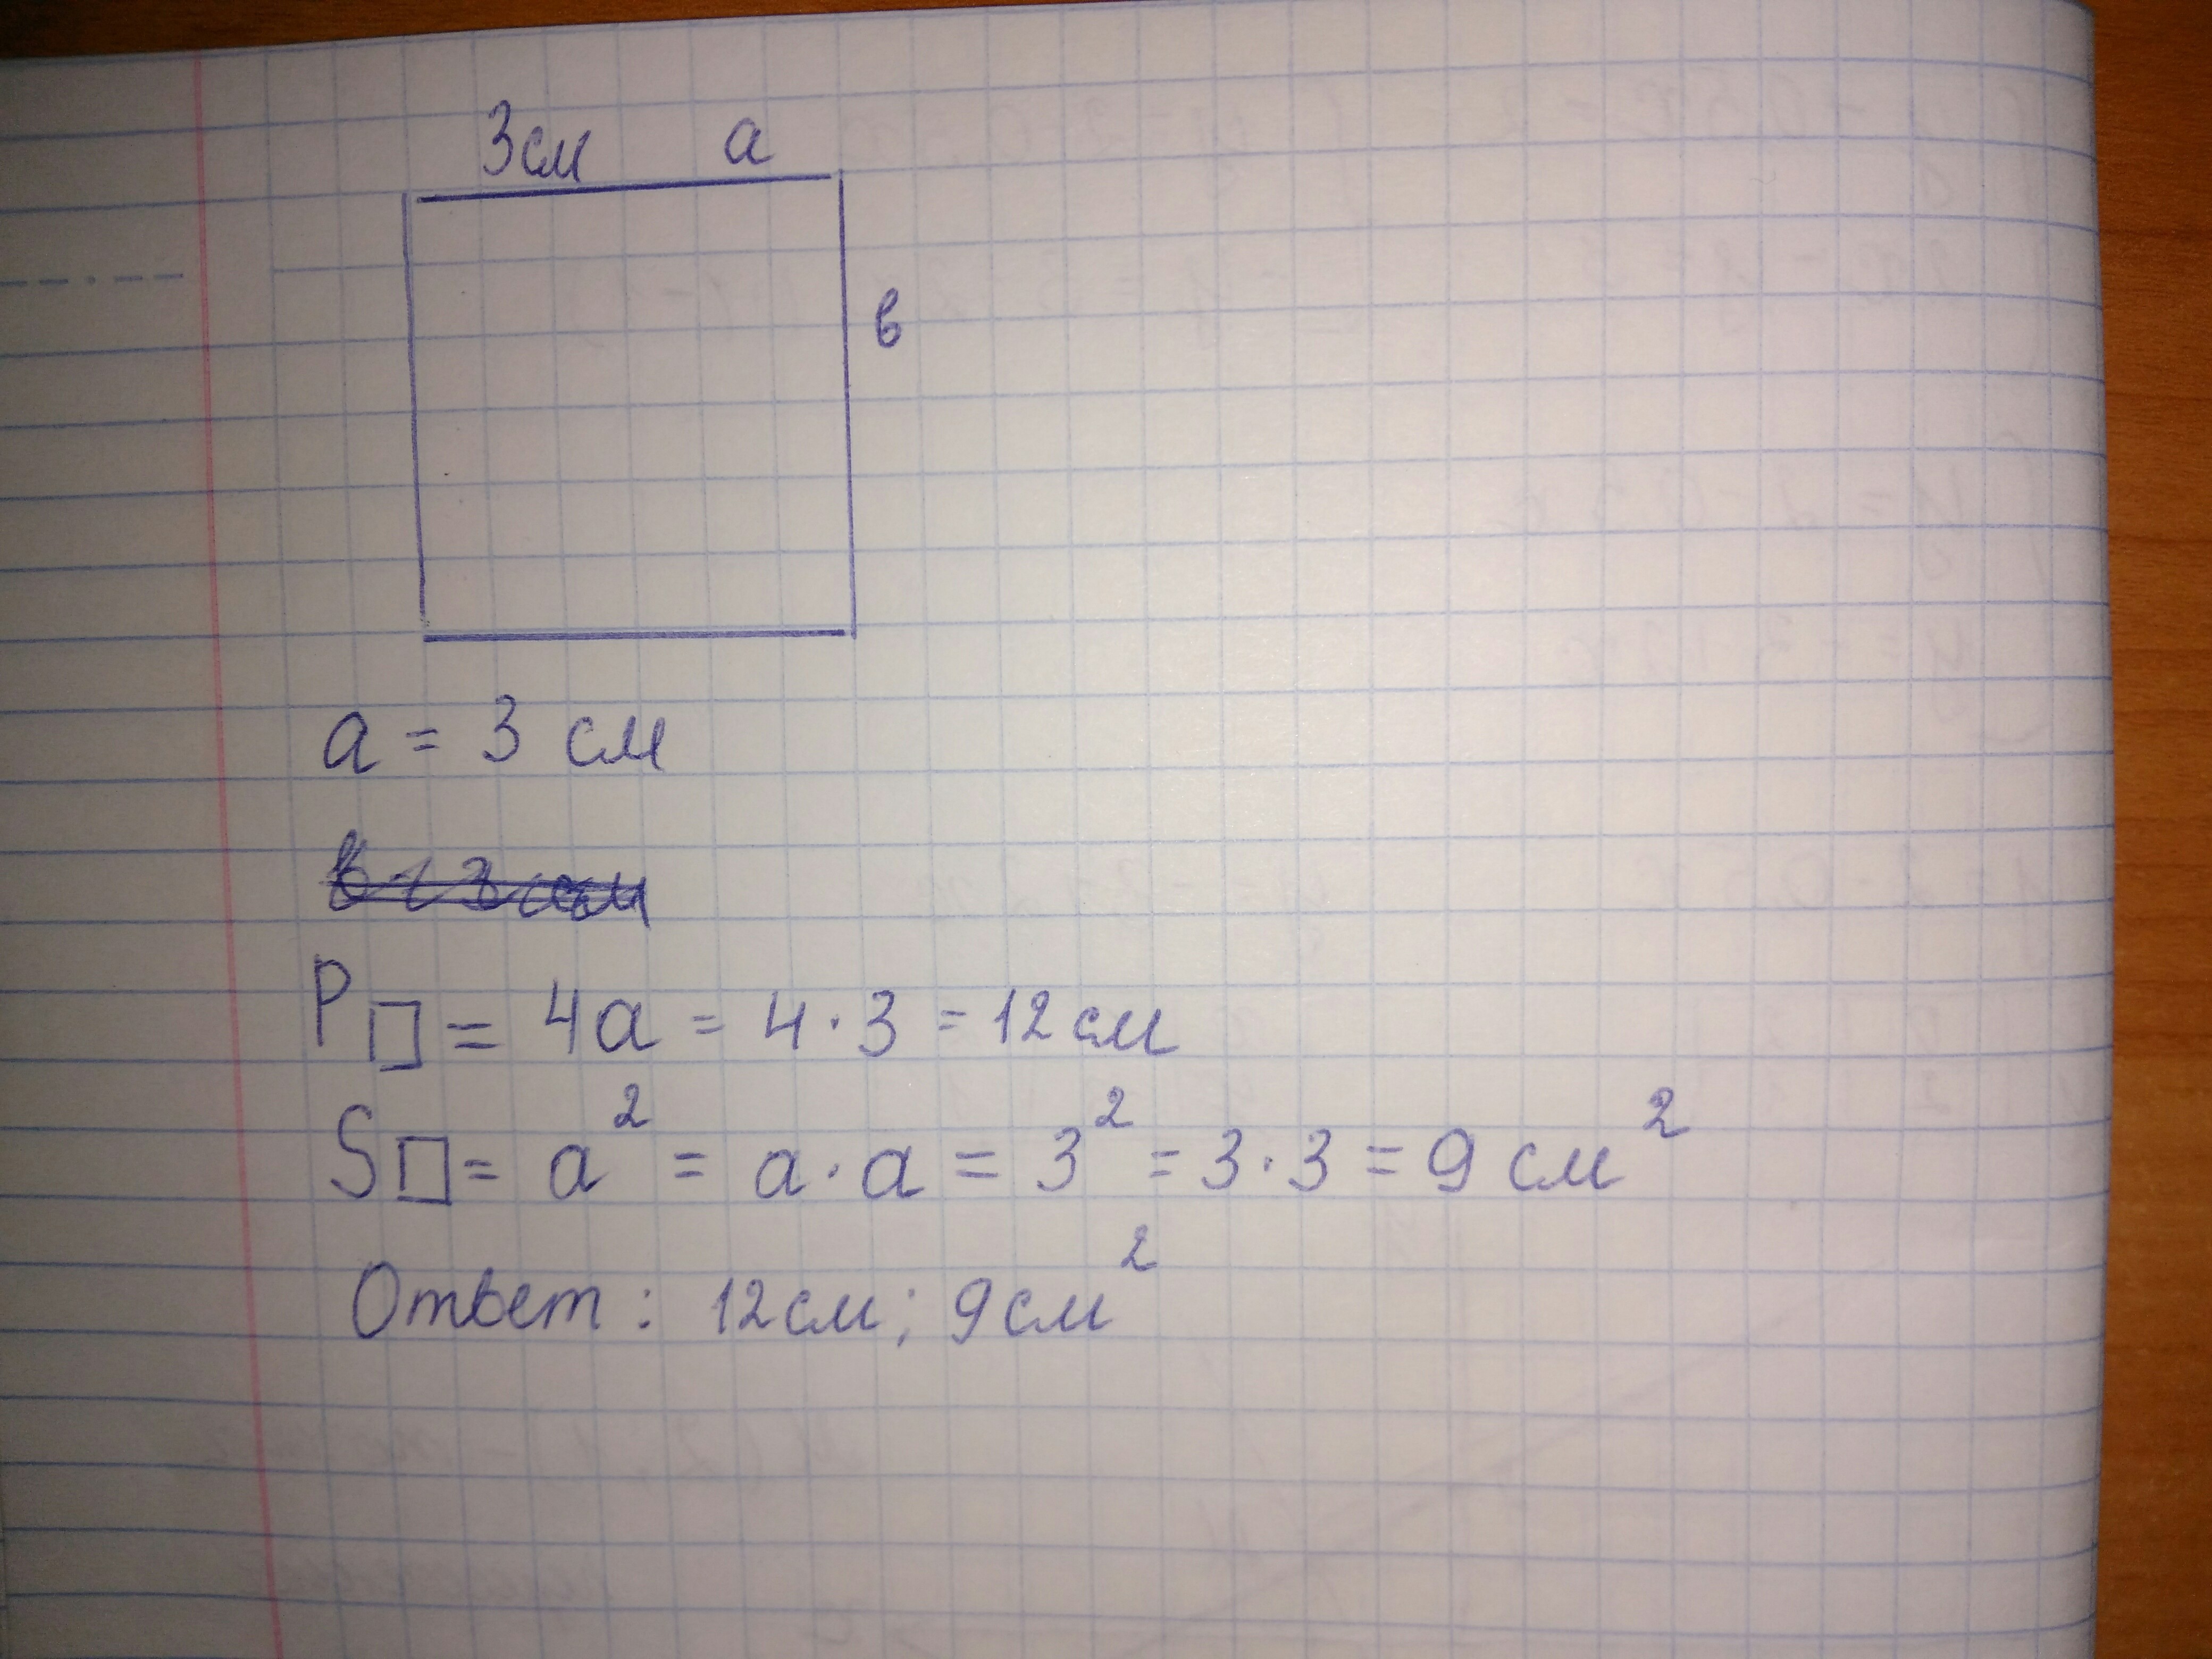 3см а
в
а = 3 см
P□ = 4а = 4·3 = 12 см
S□ = а² = а·а = 3² = 3·3 = 9 см²
Ответ: 12см; 9см²